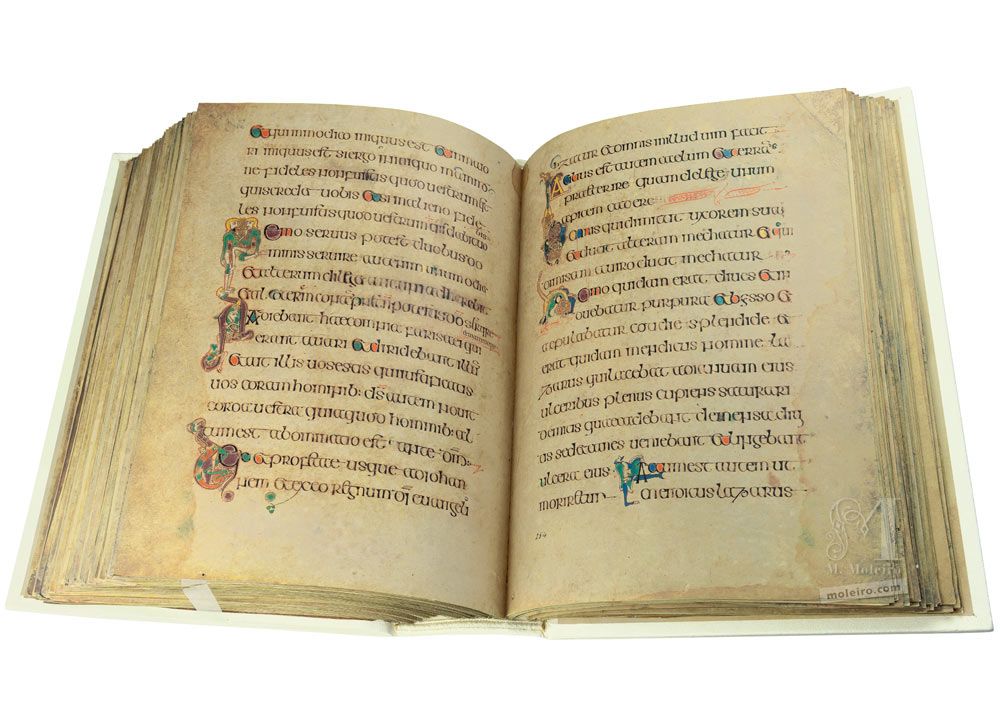 Et qui in modico iniquus est Et in maio
ri iniquus est si ergo in iniquo mamno
ne fideles non fuistis quod uestrum est
quis credet uobis Et si in alieno fide
les non fuistis quod uestrum quis dabit uo
Nemo seruus potest duobus do
minis seruire aut enim unum odiet
Et alterum diliget aut uni adherebit
potestis do seruire
Audiebant haec omnia farisaei qui
erant auari Et diridebant illum
Et ait illis uos estis qui iustificatis
uos coram hominib: ds autem nouit
corda uestra quia quod hominib: al
tum est abominatio est ante dm
Lex et profetae usque ad iohan
nem et ex eo regnum di euangeli
zatur Et omnis in illud uim facit
Facilius est autem caelum Et terra
praeterire quam de lege unum
apicem cadere
Omnis qui dimittit uxorem sua
Et ducat alteram mechatur Et qui
dimisam a uiro ducat mechatur
Homo quidam erat diues Et in
duebatur purpura Et bysso Et
aepulabatur cotidie splendide Et
erat quidam mendicus nomine la
zarus qui iacebat ad ianuam eius
ulceribus plenus cupiens saturari
de micis quae cadebant de mensa
sed et canes ueniebant Et lingebant
ulcera eius Factum est autem ut
moriretur mendicus lazarus
254
M. Moleiro
moleiro.com